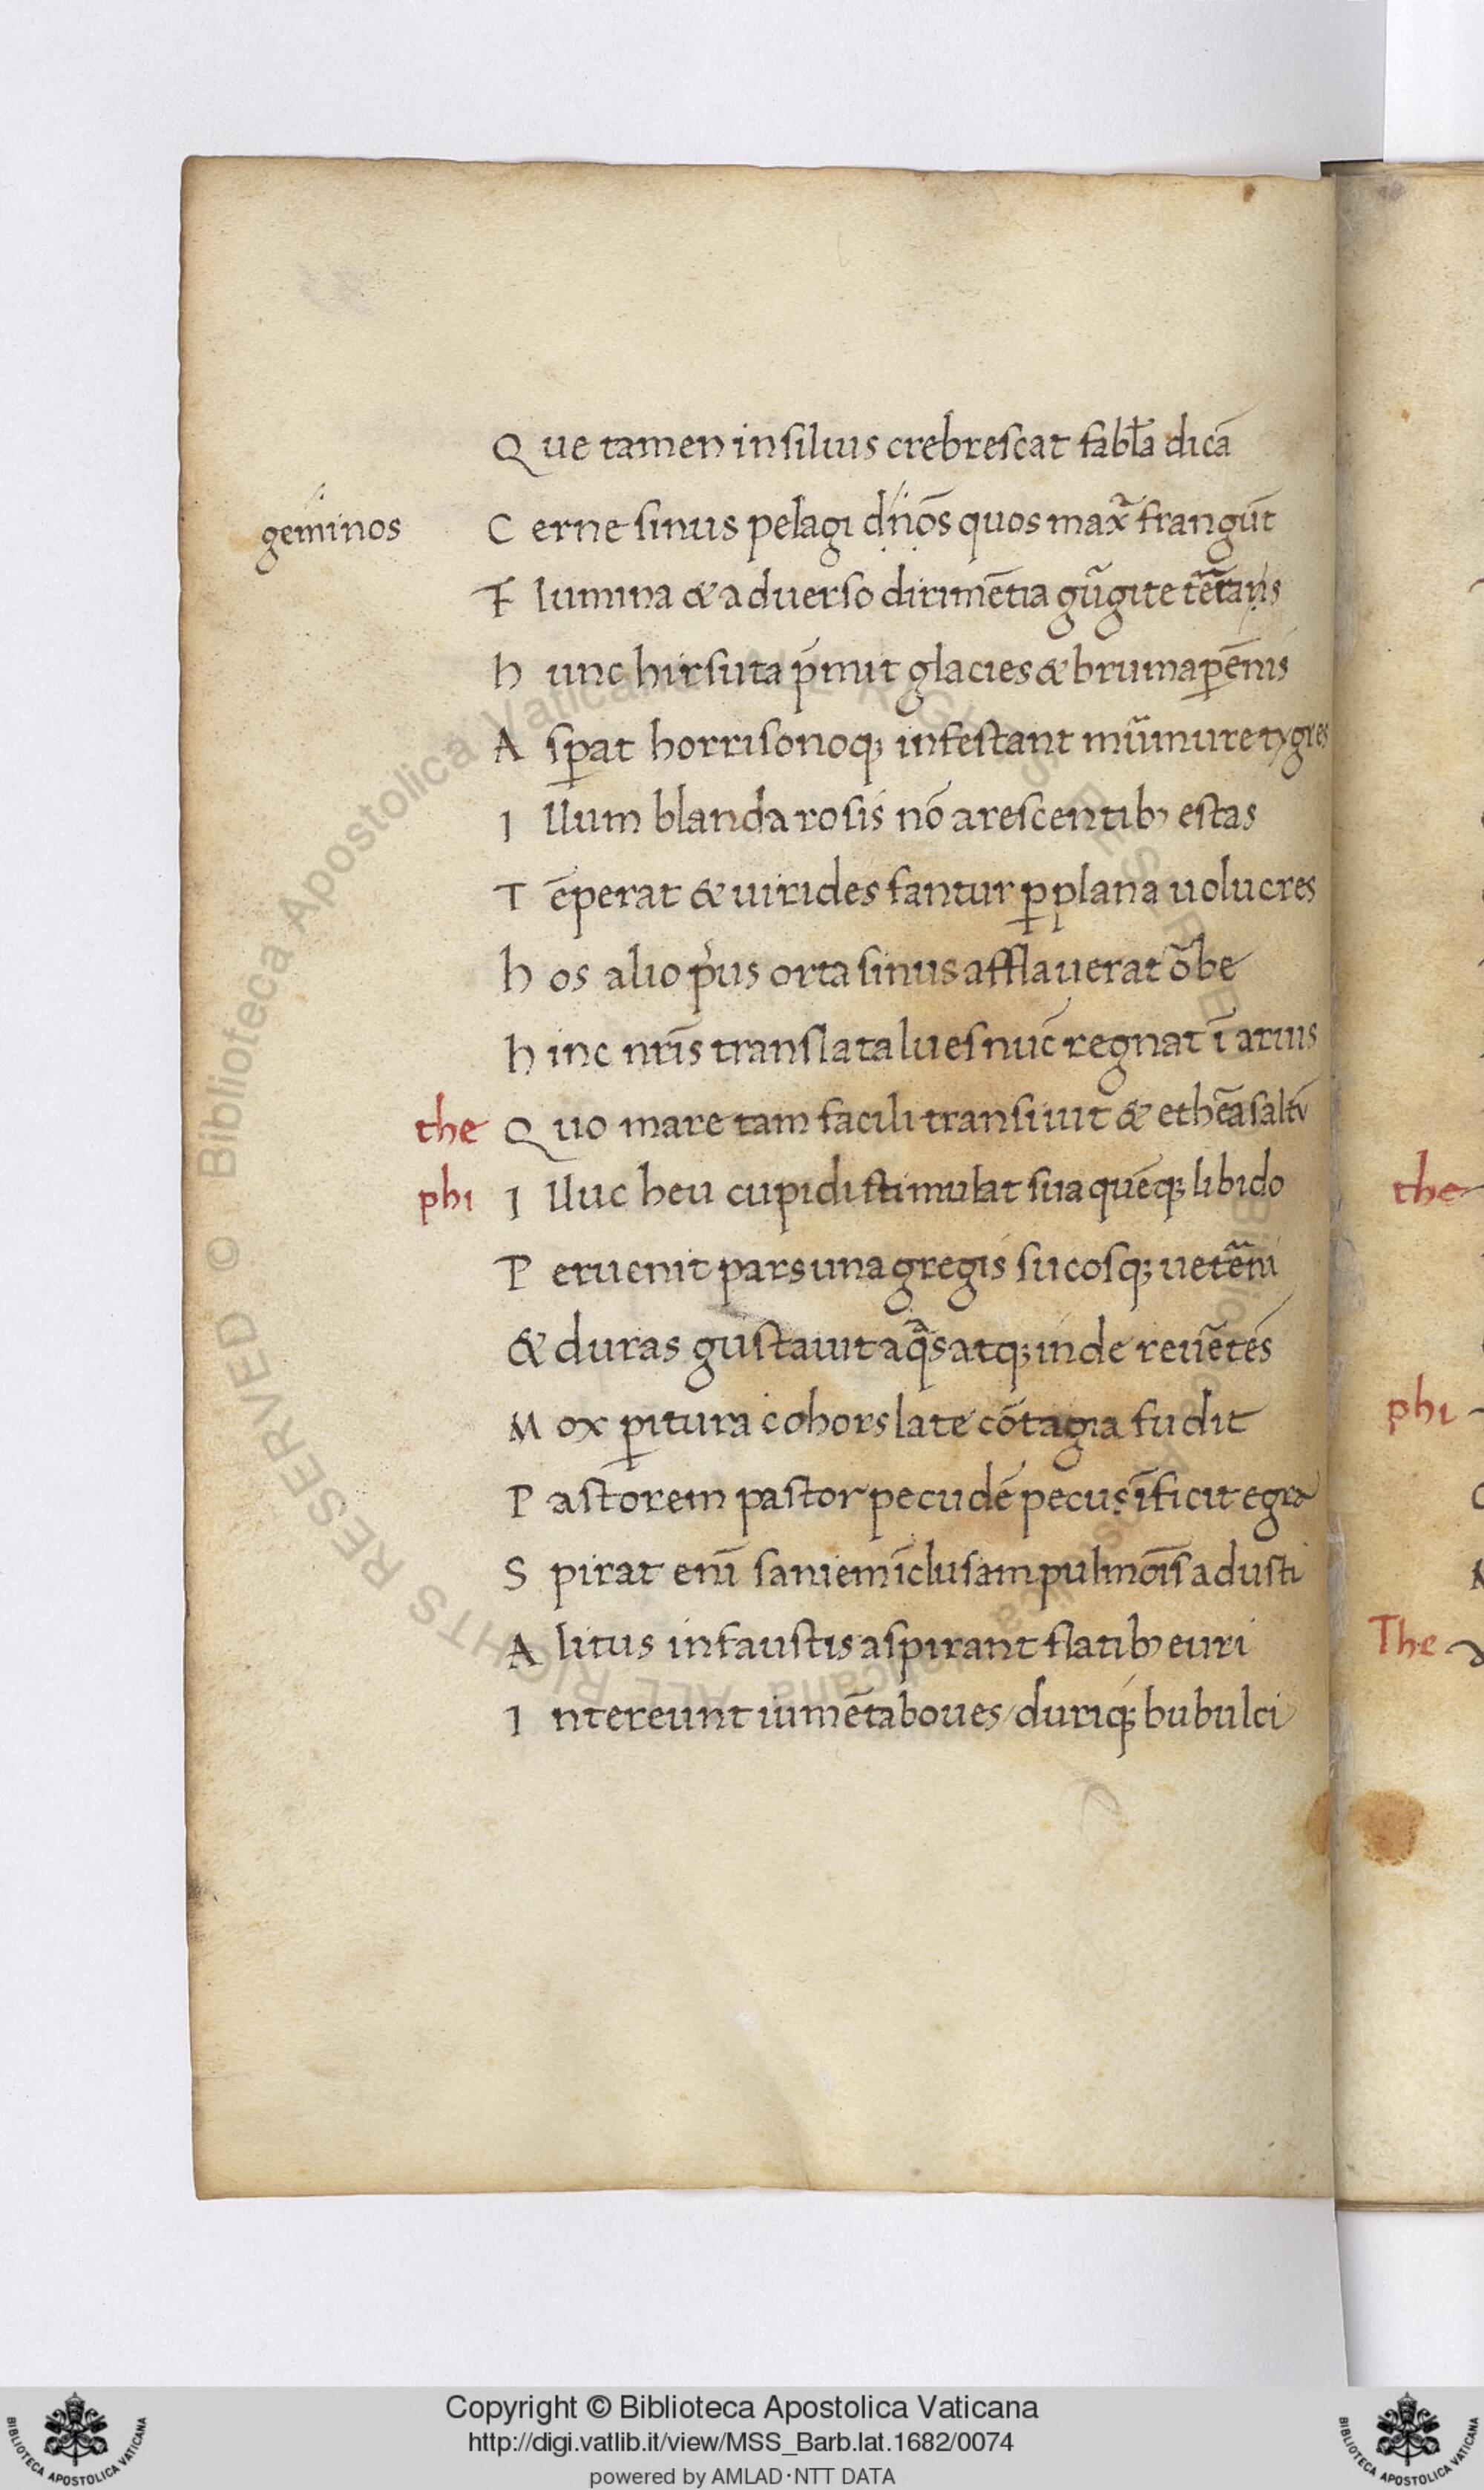 Que tamen in siluis crebrescat fabl̄a dicā
geminos
Cerne sinus pelagi dn̄os quos max̄ frangūt
Flumina & aduerso dirimētia gūgite tētans
hunc hirsuta pͥmit glacies & bruma ꝑēnis
Asꝑat horrisonoq; infestant mūmure tygres
Illum blanda rosis nō arescentib; estas
Tēperat & uirides fantur ꝑ plana uolucres
hos alio pͥus orta sinus afflauerat ōbe
hinc nrīs translata lues nūc regnat ī aruis
the Quo mare tam facili transiuit & ethēa saltu
phi Illuc heu cupidi stimulat sua quēq; libido
Peruenit pars una gregis sucosq; uetāni
& duras gustauit aqᵃs atq; inde reuētes
Mox ꝑitura cohors late cōtagia fudit
Pastorem pastor pecudē pecus īficit egra
Spirat enī saniem īclusam pulmōis adusti
Alitus infaustis aspirant flatib; euri
Intereunt iumēta boues / duriq; bubulci
the
phi
The
BIBLIOTECA APOSTOLICA VATICANA
Copyright © Biblioteca Apostolica Vaticana
http://digi.vatlib.it/view/MSS_Barb.lat.1682/0074
powered by AMLAD·NTT DATA
BIBLIOTECA APOSTOLICA VATICANA